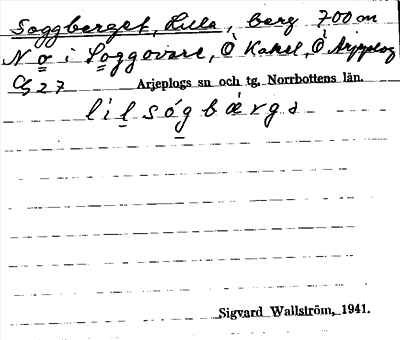 Soggberget, Lilla, berg 700 m
N o i Soggovare, Ö Kakel, Ö Arjeplog
Cg 27 Arjeplogs sn och tg, Norrbottens län.
lil sógbærgs
Sigvard Wallström, 1941.